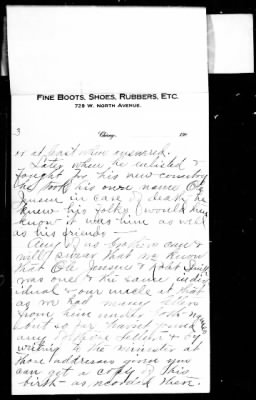 FINE BOOTS, SHOES, RUBBERS, ETC.
729 W. NORTH AVENUE.
3
Chicago, 190
or at last when answered.
Later when he enlisted &
fought for his new country
he took his own name Ole
Jensen in case of death he
knew his folks would
know it was him as well
as his friends
Any of us brothers can &
will swear that we know
that Ole Jensen &
was one & the same indiv
idual & our uncle at that
as we had many letters
from him under both names
but so far havent found
any before letters &
writing to the minister at
those addresses given you
can get a copy of his
birth as recorded there.